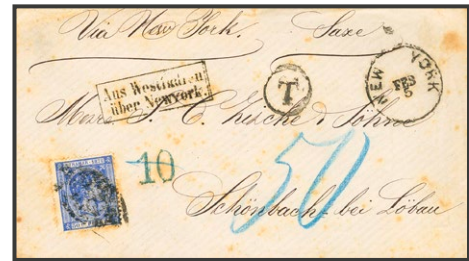 Via New York. Saxe
Aus Westindien
über Newyork.
T
NEW YORK
FEB
Messrs. J. C. Zische & Söhne
10
50
Schönbach bei Löbau